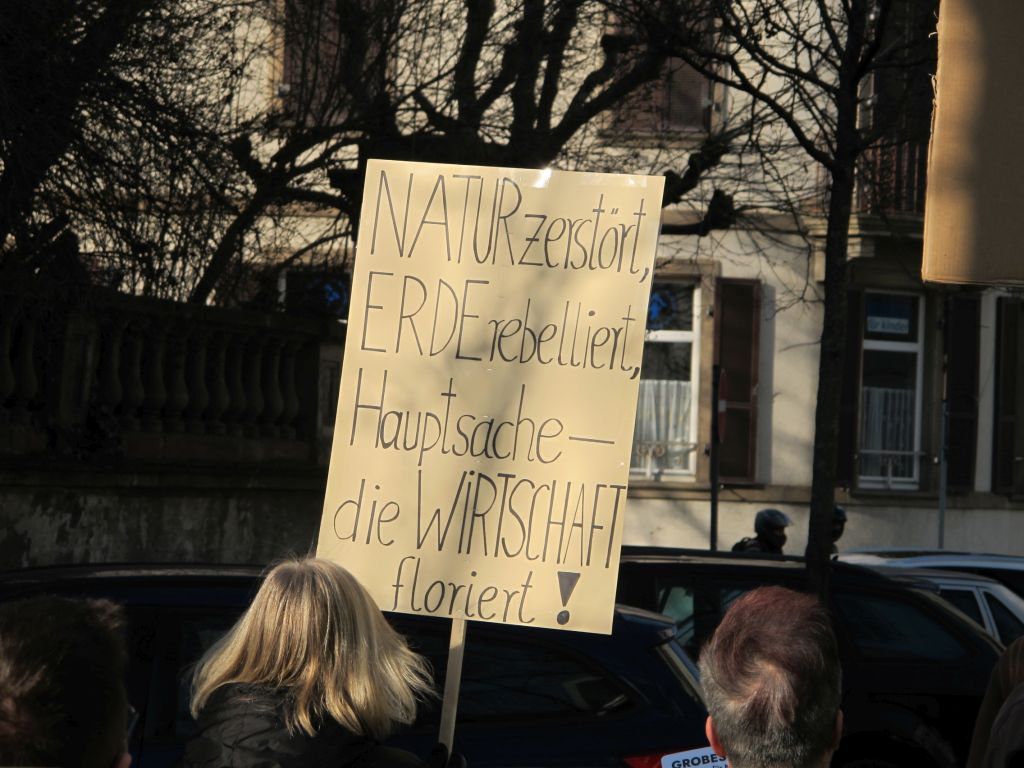 NATUR zerstört,
ERDE rebelliert,
Hauptsache —
die WiRTSCHAFT
floriert !
für Kinder
GROBES